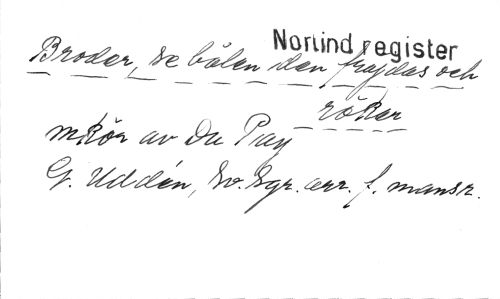 Norlind register
Broder, se bålen den frajdas och
röker
mkör av Du Puy
G. Uddén, Sv. sgr. arr. f. mansk.